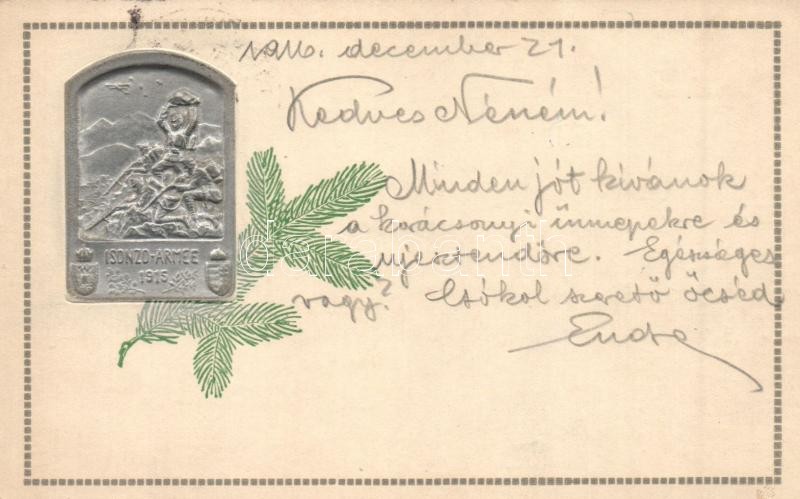 1916. december 21.
Kedves Néném!
Minden jót kívánok
a karácsonyi ünnepekre és
ujesztendőre. Egészséges
vagy? Csókol szerető öcséd
Endre
ISONZO-ARMEE
1915
darabanth